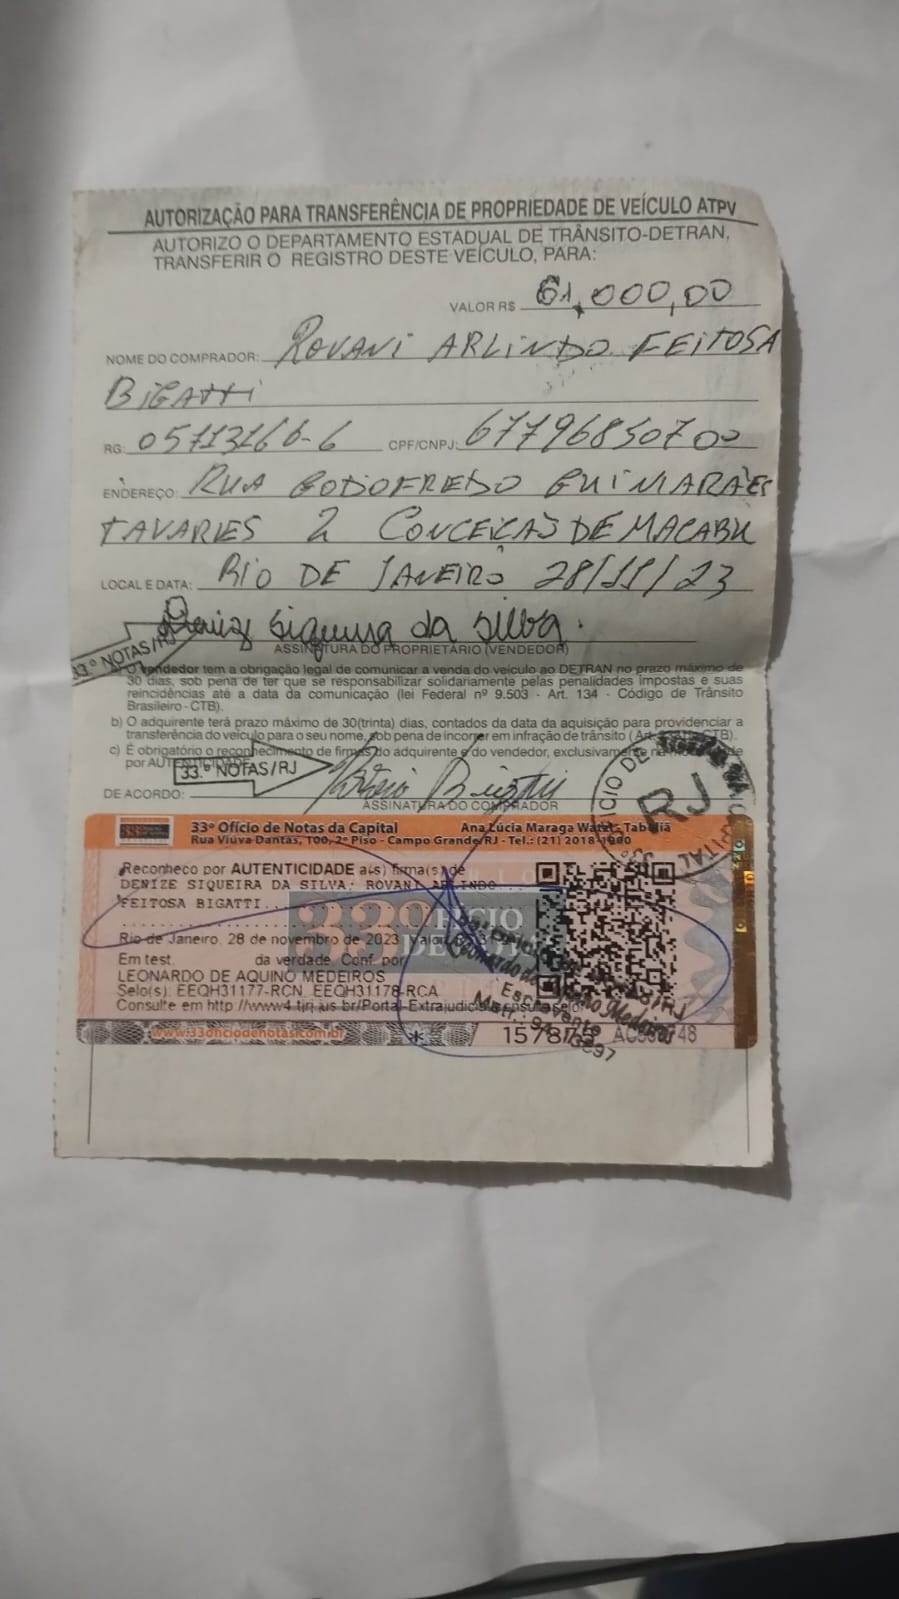 AUTORIZAÇÃO PARA TRANSFERÊNCIA DE PROPRIEDADE DE VEÍCULO ATPV
AUTORIZO O DEPARTAMENTO ESTADUAL DE TRÂNSITO-DETRAN,
TRANSFERIR O REGISTRO DESTE VEÍCULO, PARA:
VALOR R$ 61.000,00
NOME DO COMPRADOR: ROVANI ARLINDO FEITOSA
BIGATTI
RG: 05713166-6 CPF/CNPJ: 67796850700
ENDEREÇO: RUA GODOFREDO GUIMARÃES
TAVARES 2 CONCEIÇÃO DE MACABU
LOCAL E DATA: RIO DE JANEIRO 28/11/23
Denize Siqueira da Silva.
33.º NOTAS/RJ
ASSINATURA DO PROPRIETÁRIO (VENDEDOR)
a) O vendedor tem a obrigação legal de comunicar a venda do veículo ao DETRAN no prazo máximo de
30 dias, sob pena de ter que se responsabilizar solidariamente pelas penalidades impostas e suas
reincidências até a data da comunicação (lei Federal nº 9.503 - Art. 134 - Código de Trânsito
Brasileiro - CTB).
b) O adquirente terá prazo máximo de 30(trinta) dias, contados da data da aquisição para providenciar a
transferência do veículo para o seu nome, sob pena de incorrer em infração de trânsito (Art. CTB).
c) É obrigatório o reconhecimento de firmas do adquirente e do vendedor, exclusivamente na
por AUTENTICIDADE
33.º NOTAS/RJ
DE ACORDO:
ASSINATURA DO COMPRADOR
RJ
33º Ofício de Notas da Capital Ana Lúcia Maraga Tabeliã
Rua Viúva Dantas, 100, 2º Piso - Campo Grande/RJ - Tel.: (21) 2018-1900
Reconheço por AUTENTICIDADE a(s) firma(s) de
DENIZE SIQUEIRA DA SILVA; ROVANI ARLINDO
FEITOSA BIGATTI
Rio de Janeiro, 28 de novembro de 2023. Valor
Em test. da verdade. Conf. por
LEONARDO DE AQUINO MEDEIROS
Selo(s): EEQH31177-RCN EEQH31178-RCA
Consulte em http://www4.tjrj.jus.br/Portal-Extrajudicial/consultaselo/
Escrevente
www.33oficiodenotas.com.br